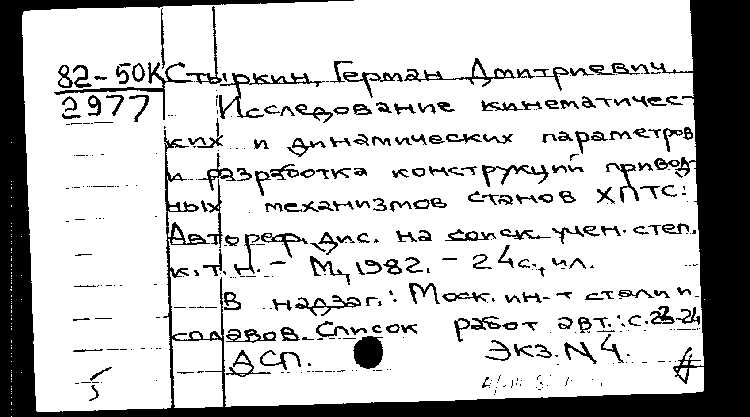 82-50К Стыркин, Герман Дмитриевич.
2977 Исследование кинематичес-
ких и динамических параметров
и разработка конструкций привод-
ных механизмов станов ХПТС:
Автореф. дис. на соиск. учен. степ.
к.т.н. - М., 1982. - 24с., ил.
В надзаг.: Моск. ин-т стали и
сплавов. Список работ авт.: с. 23-24
ДСП. Экз. N 4.
5